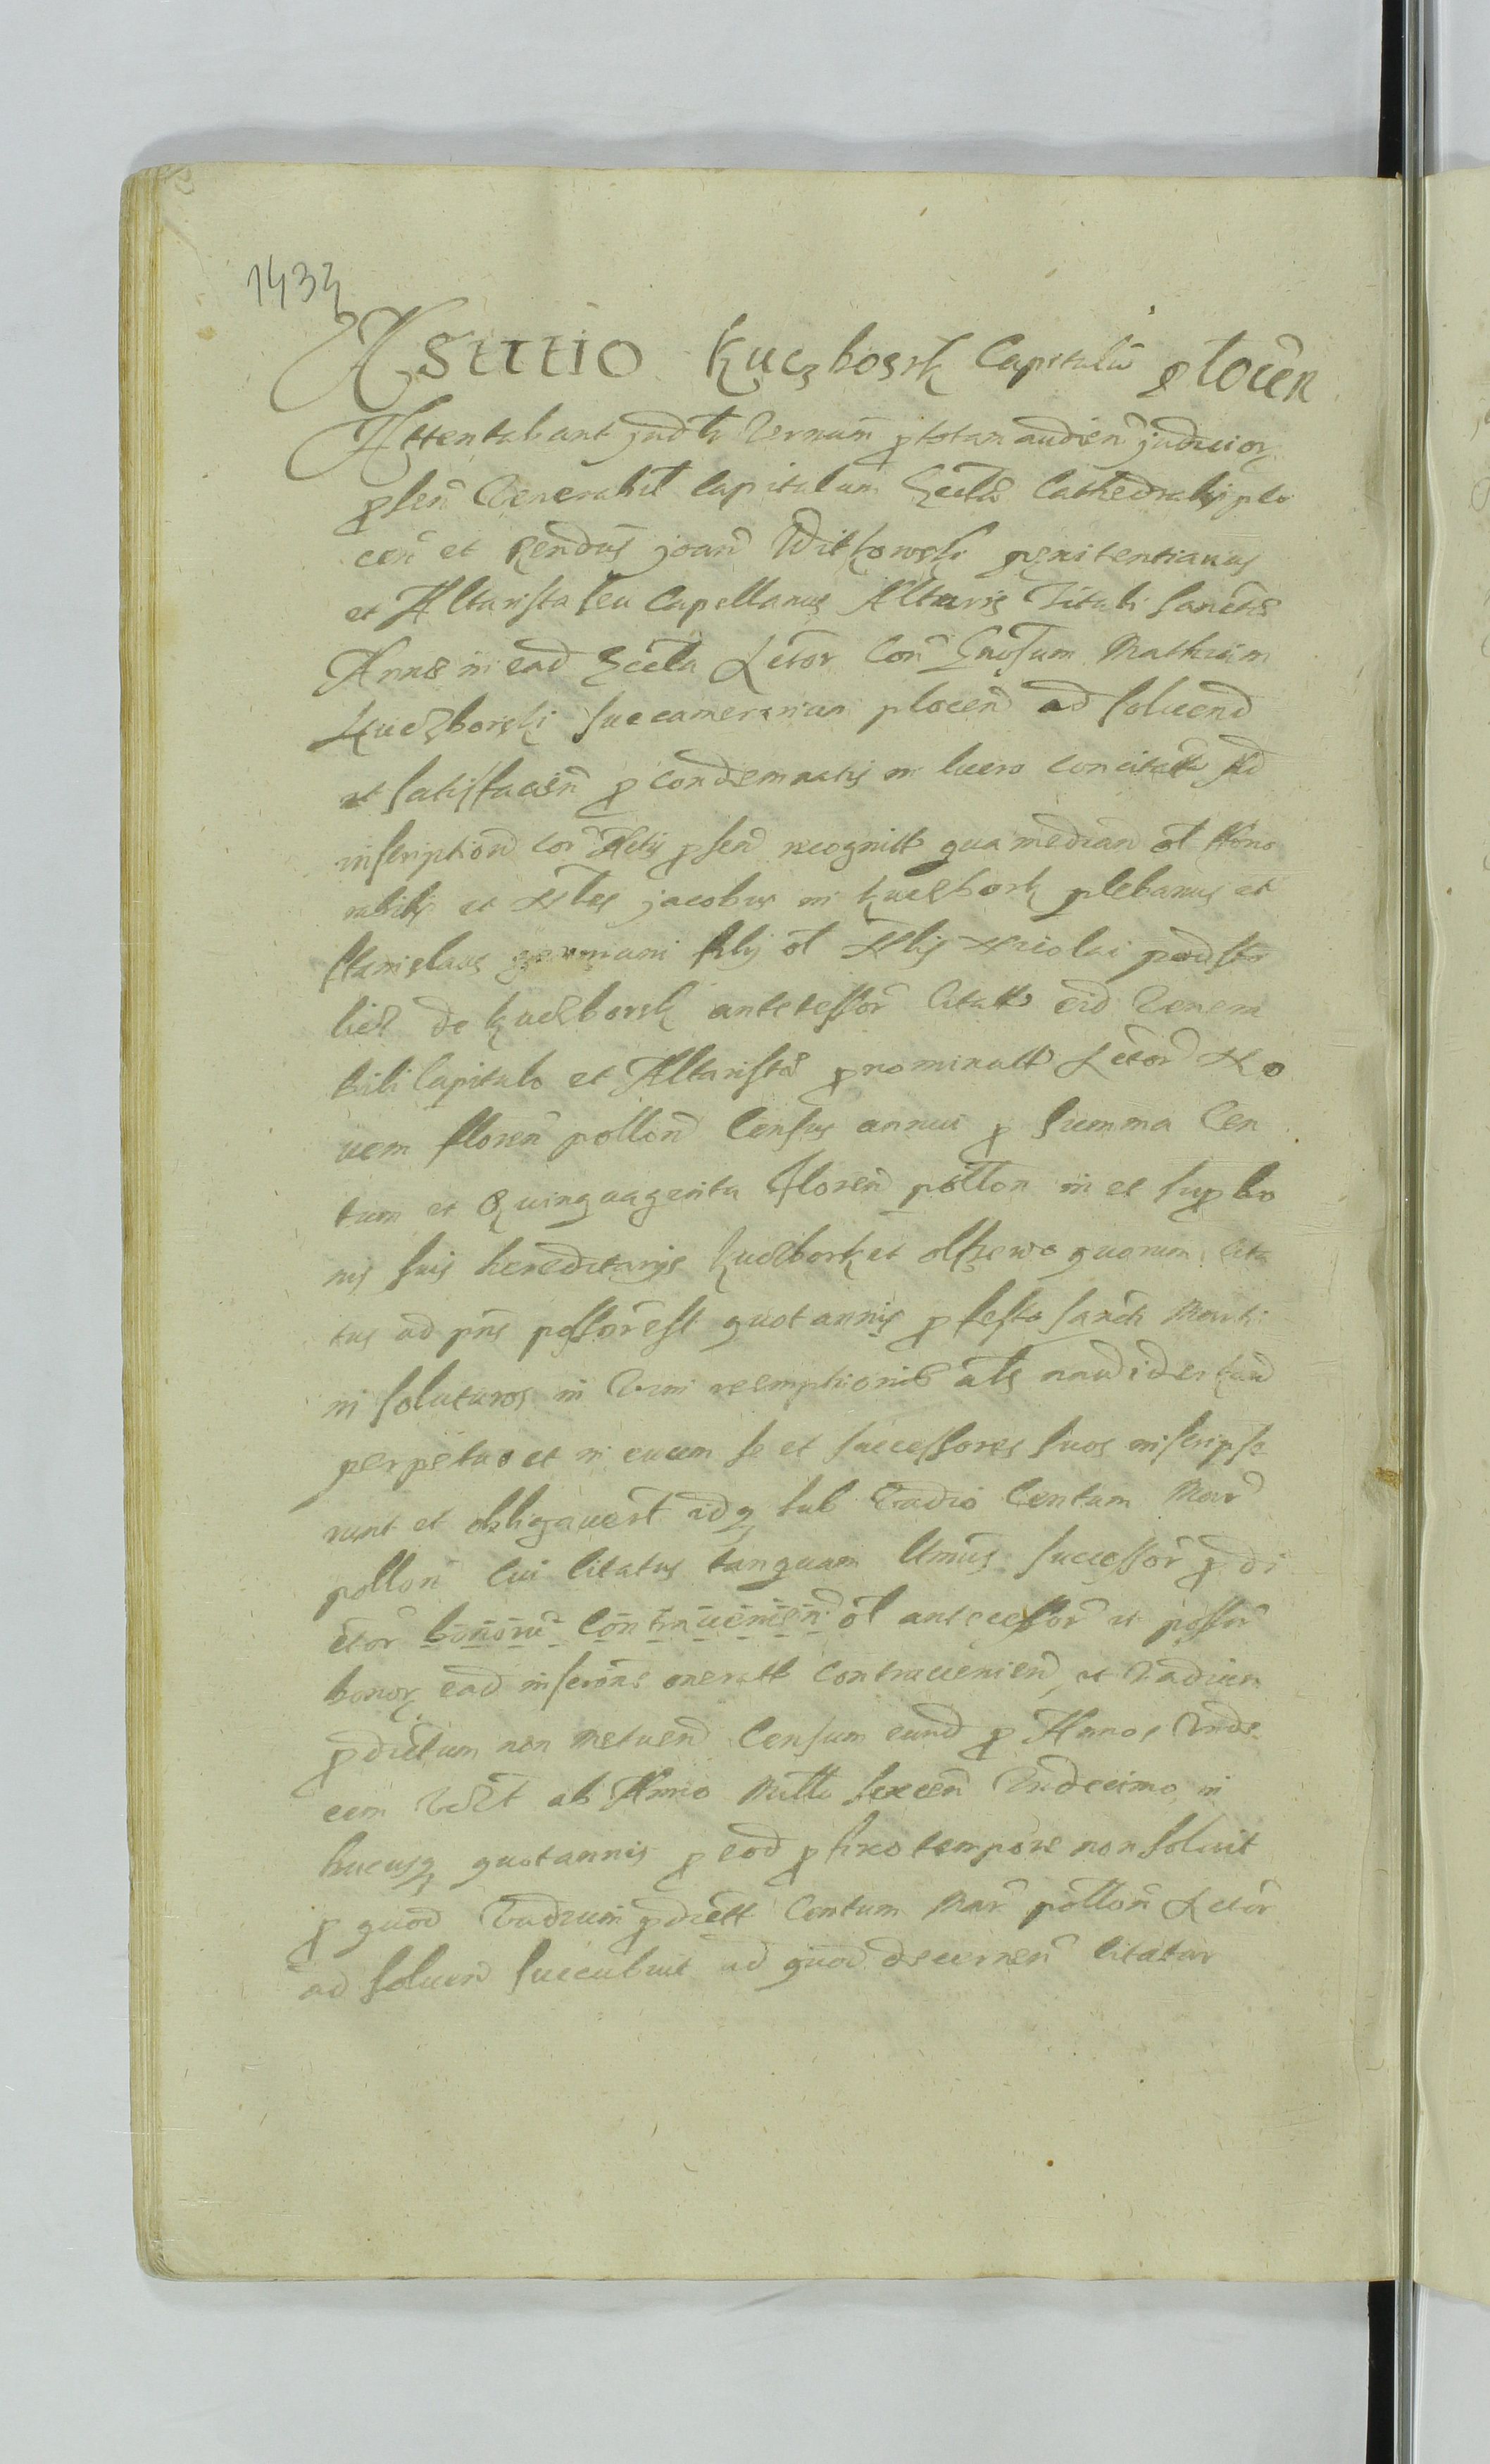 1432
Astitio Kuczborsk Capituli plocen
Attentabant judlr ternum p totam audien judicior
psen Venerabil Capitulum Eccla Cathedralis plo
cen et Rendus joan Witkowski penitentiarius
et Altarista seu Capellanus Altaris Tituli sanctae
Annae in ead Eccla Actor Con Gnosum Mathiam
Kuczborski succamerarium plocen ad soluend
et satisfacien p condemnatis in lucro concitatt Ad
inscription cor Actis psen recognitt qua median ol Hono
rabilis et Nbles jacobus in Kuczbork plebanus et
stanislaus germani filij ol Nblis Nicolai podsto
lici de Kuczborsk antecessor Citatt eid Venera
bili Capitulo et Altaristae pnominatt Actor No
uem floren pollon Census annui p summa Cen
tum et Quinquaginta floren pollon in et sup bo
nis suis hereditarijs Kuczbork et olszewo quorum Cita
tus ad pns possor est quotannis p festo sancti Marti
ni soluturos in Vim reemptionis als na widerkauf
perpetuo et in euum se et successores suos inscripse
runt et obligauert idq sub Vadio Centum Mar
pollon Cui Citatus tanquam Vmus successor p di
ctor bonoru Contrauenien ol antecessor et possor
bonor ead inscrone oneratt Contrauenien et Vadium
pdictum non metuend Censum eund p Annos Vnde
cem Vdzt ab Anno Millo sexcen Vndecimo in
hucusq quotannis p eod pfixo tempore non soluit
p quod Vadium pdictt Centum Mar pollon Actor
ad soluen succubuit ad quod decernen Citatur